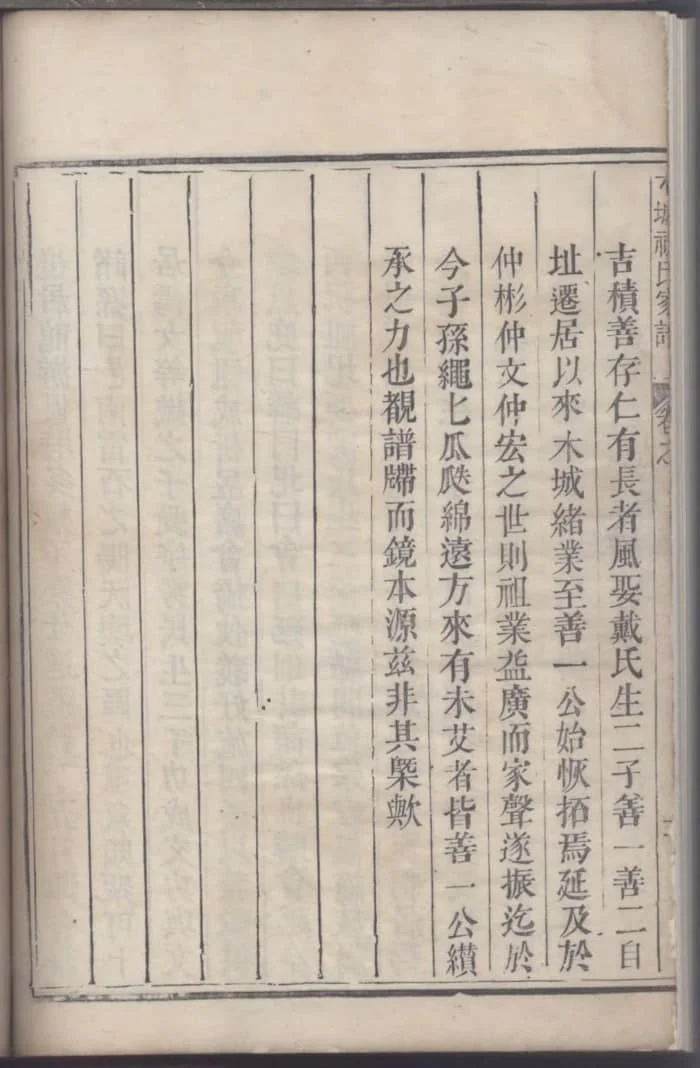 城 氏家譜 卷之
吉積善存仁有長者風娶戴氏生二子善一善二自
址遷居以來木城緒業至善一公始恢拓焉延及於
仲彬仲文仲宏之世則祖業益廣而家聲遂振迄於
今子孫繩匕瓜瓞綿遠方來有未艾者皆善一公纘
承之力也覩譜牒而鏡本源茲非其槩歟